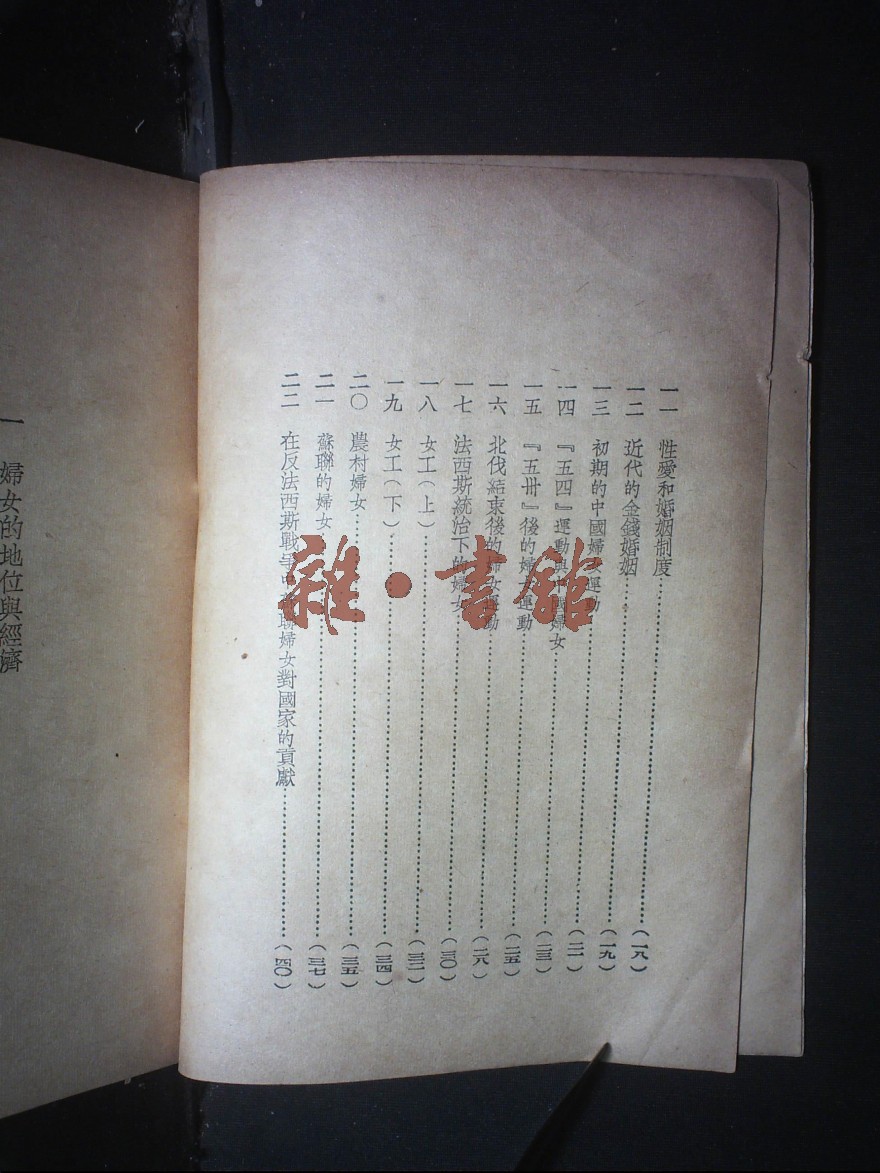 一一　性愛和婚姻制度……（一八）
一二　近代的金錢婚姻……（一九）
一三　初期的中國婦女運動……（二一）
一四　『五四』運動與中國婦女……（二三）
一五　『五卅』後的婦女運動……（二五）
一六　北伐結束後的婦女運動……（二八）
一七　法西斯統治下的婦女……（三〇）
一八　女工（上）……（三二）
一九　女工（下）……（三四）
二〇　農村婦女……（三五）
二一　蘇聯的婦女……（三七）
二二　在反法西斯戰爭中蘇聯婦女對國家的貢獻……（四〇）
一　婦女的地位與經濟
雜·書館